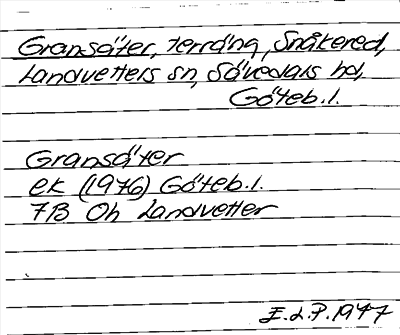 Gransäter, terräng, Snåkered,
Landvetters sn, Sävedals hd,
Göteb.l.
Gransäter
ek (1976) Göteb.l.
7B Oh Landvetter
E.L.P. 1977